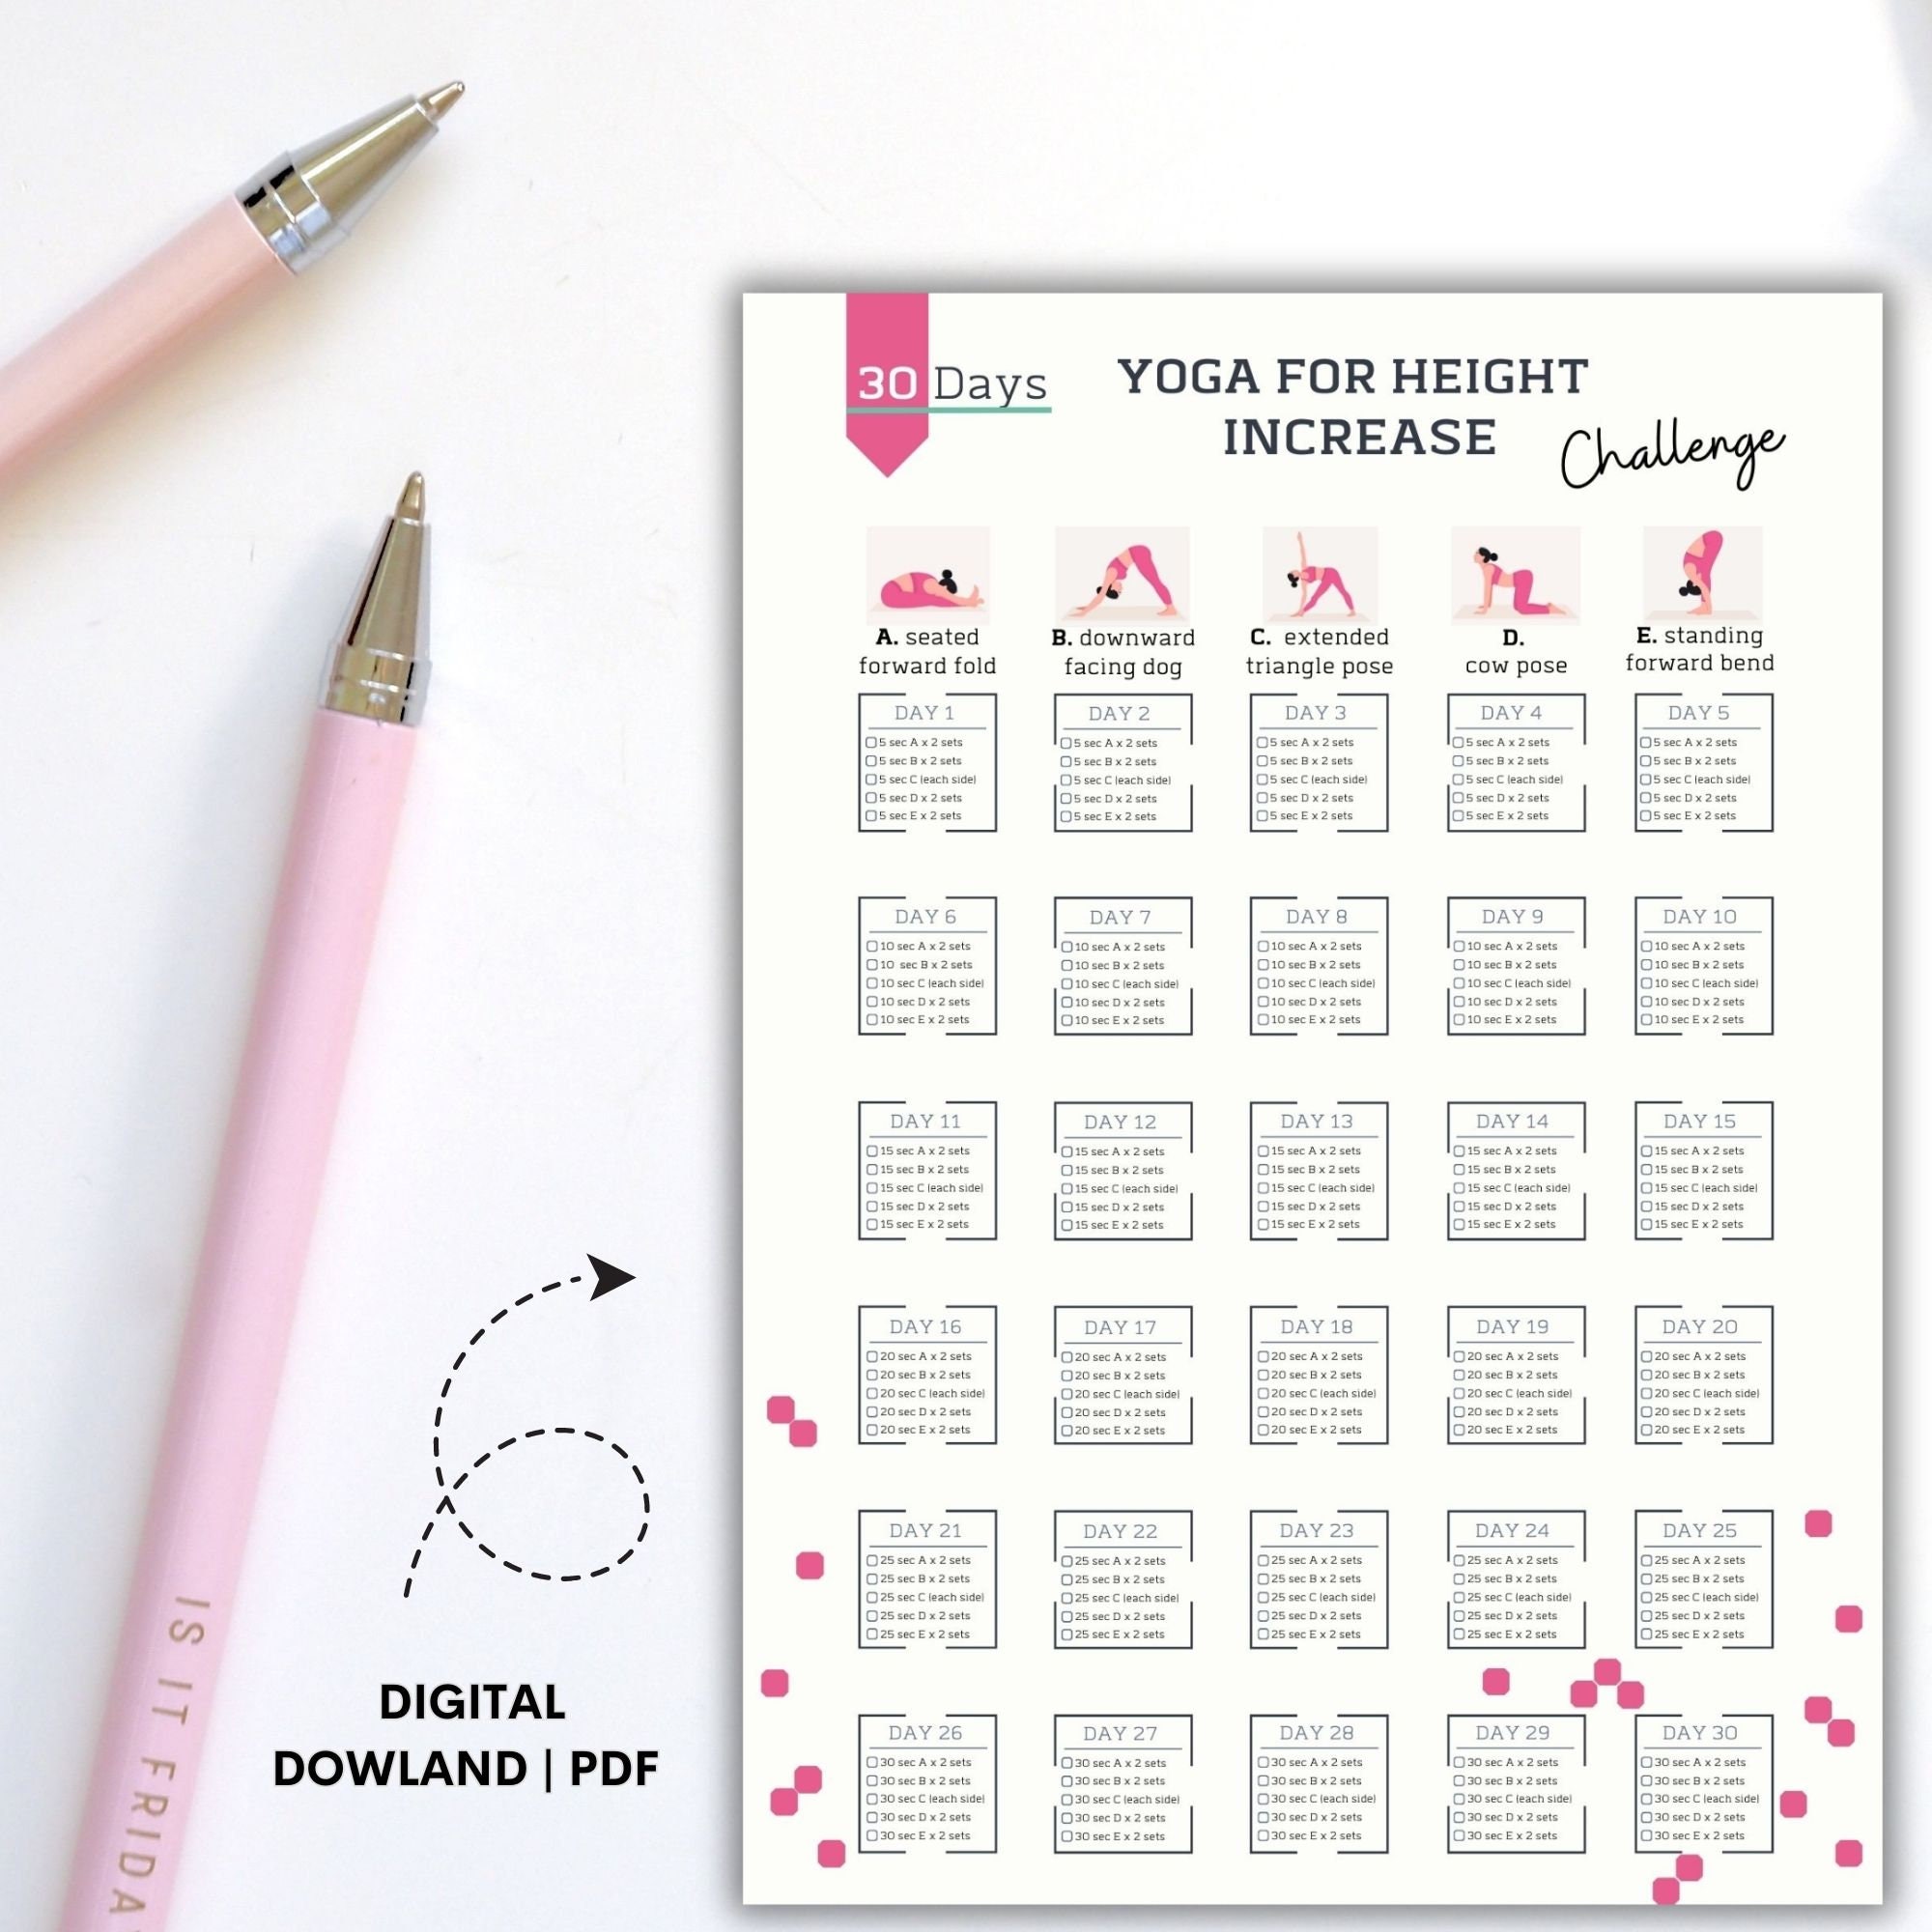 30 Days
YOGA FOR HEIGHT
INCREASE
Challenge
A. seated
forward fold
B. downward
facing dog
C. extended
triangle pose
D.
cow pose
E. standing
forward bend
DAY 1
5 sec A x 2 sets
5 sec B x 2 sets
5 sec C (each side)
5 sec D x 2 sets
5 sec E x 2 sets
DAY 2
5 sec A x 2 sets
5 sec B x 2 sets
5 sec C (each side)
5 sec D x 2 sets
5 sec E x 2 sets
DAY 3
5 sec A x 2 sets
5 sec B x 2 sets
5 sec C (each side)
5 sec D x 2 sets
5 sec E x 2 sets
DAY 4
5 sec A x 2 sets
5 sec B x 2 sets
5 sec C (each side)
5 sec D x 2 sets
5 sec E x 2 sets
DAY 5
5 sec A x 2 sets
5 sec B x 2 sets
5 sec C (each side)
5 sec D x 2 sets
5 sec E x 2 sets
DAY 6
10 sec A x 2 sets
10 sec B x 2 sets
10 sec C (each side)
10 sec D x 2 sets
10 sec E x 2 sets
DAY 7
10 sec A x 2 sets
10 sec B x 2 sets
10 sec C (each side)
10 sec D x 2 sets
10 sec E x 2 sets
DAY 8
10 sec A x 2 sets
10 sec B x 2 sets
10 sec C (each side)
10 sec D x 2 sets
10 sec E x 2 sets
DAY 9
10 sec A x 2 sets
10 sec B x 2 sets
10 sec C (each side)
10 sec D x 2 sets
10 sec E x 2 sets
DAY 10
10 sec A x 2 sets
10 sec B x 2 sets
10 sec C (each side)
10 sec D x 2 sets
10 sec E x 2 sets
DAY 11
15 sec A x 2 sets
15 sec B x 2 sets
15 sec C (each side)
15 sec D x 2 sets
15 sec E x 2 sets
DAY 12
15 sec A x 2 sets
15 sec B x 2 sets
15 sec C (each side)
15 sec D x 2 sets
15 sec E x 2 sets
DAY 13
15 sec A x 2 sets
15 sec B x 2 sets
15 sec C (each side)
15 sec D x 2 sets
15 sec E x 2 sets
DAY 14
15 sec A x 2 sets
15 sec B x 2 sets
15 sec C (each side)
15 sec D x 2 sets
15 sec E x 2 sets
DAY 15
15 sec A x 2 sets
15 sec B x 2 sets
15 sec C (each side)
15 sec D x 2 sets
15 sec E x 2 sets
DAY 16
20 sec A x 2 sets
20 sec B x 2 sets
20 sec C (each side)
20 sec D x 2 sets
20 sec E x 2 sets
DAY 17
20 sec A x 2 sets
20 sec B x 2 sets
20 sec C (each side)
20 sec D x 2 sets
20 sec E x 2 sets
DAY 18
20 sec A x 2 sets
20 sec B x 2 sets
20 sec C (each side)
20 sec D x 2 sets
20 sec E x 2 sets
DAY 19
20 sec A x 2 sets
20 sec B x 2 sets
20 sec C (each side)
20 sec D x 2 sets
20 sec E x 2 sets
DAY 20
20 sec A x 2 sets
20 sec B x 2 sets
20 sec C (each side)
20 sec D x 2 sets
20 sec E x 2 sets
DAY 21
25 sec A x 2 sets
25 sec B x 2 sets
25 sec C (each side)
25 sec D x 2 sets
25 sec E x 2 sets
DAY 22
25 sec A x 2 sets
25 sec B x 2 sets
25 sec C (each side)
25 sec D x 2 sets
25 sec E x 2 sets
DAY 23
25 sec A x 2 sets
25 sec B x 2 sets
25 sec C (each side)
25 sec D x 2 sets
25 sec E x 2 sets
DAY 24
25 sec A x 2 sets
25 sec B x 2 sets
25 sec C (each side)
25 sec D x 2 sets
25 sec E x 2 sets
DAY 25
25 sec A x 2 sets
25 sec B x 2 sets
25 sec C (each side)
25 sec D x 2 sets
25 sec E x 2 sets
DAY 26
30 sec A x 2 sets
30 sec B x 2 sets
30 sec C (each side)
30 sec D x 2 sets
30 sec E x 2 sets
DAY 27
30 sec A x 2 sets
30 sec B x 2 sets
30 sec C (each side)
30 sec D x 2 sets
30 sec E x 2 sets
DAY 28
30 sec A x 2 sets
30 sec B x 2 sets
30 sec C (each side)
30 sec D x 2 sets
30 sec E x 2 sets
DAY 29
30 sec A x 2 sets
30 sec B x 2 sets
30 sec C (each side)
30 sec D x 2 sets
30 sec E x 2 sets
DAY 30
30 sec A x 2 sets
30 sec B x 2 sets
30 sec C (each side)
30 sec D x 2 sets
30 sec E x 2 sets
DIGITAL
DOWLAND | PDF
IS IT FRIDA